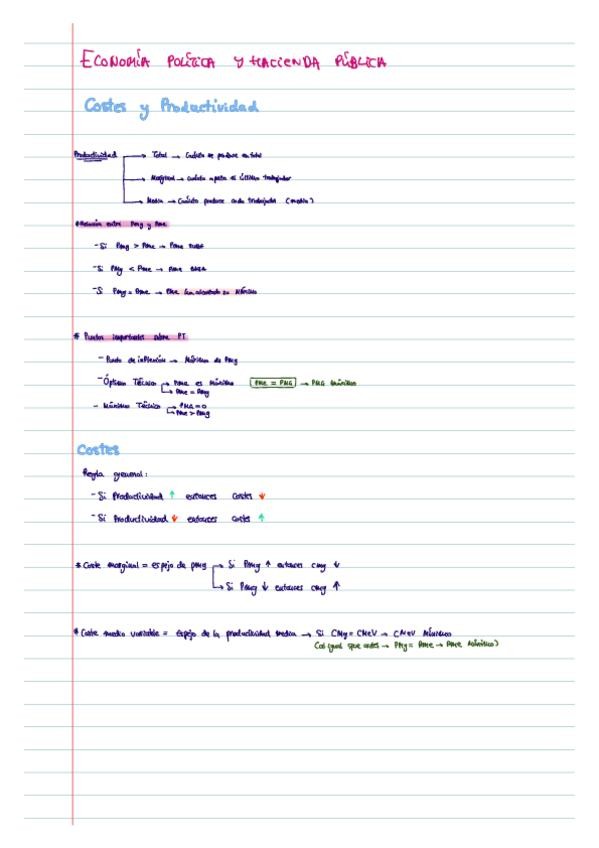 ECONOMÍA POLÍTICA Y HACIENDA PÚBLICA
Costes y Productividad
Productividad → Total → Cuánto se produce en total
→ Marginal → cuánto aporta el último trabajador
→ Media → Cuánto produce cada trabajador (media)
*Relación entre PMg y PMe
- Si PMg > PMe → PMe SUBE
- Si PMg < PMe → PMe BAJA
- Si PMg = PMe → PMe ha alcanzado su Máximo
* Puntos importantes sobre PT
- Punto de inflexión → Máximo de PMg
- Óptimo Técnico → PMe es Máximo PMe = PMG → PMG Máximo
↳ PMe = PMg
- Máximo Técnico → PMG = 0
↳ PMe > PMg
Costes
Regla general:
- Si Productividad ↑ entonces Costes ↓
- Si Productividad ↓ entonces Costes ↑
* Coste marginal = espejo de PMg → Si PMg ↑ entonces CMg ↓
↳ Si PMg ↓ entonces CMg ↑
* Coste medio variable = espejo de la productividad media → Si CMg = CMeV → CMeV Mínimo
(al igual que antes → PMg = PMe → PMe Máximo)